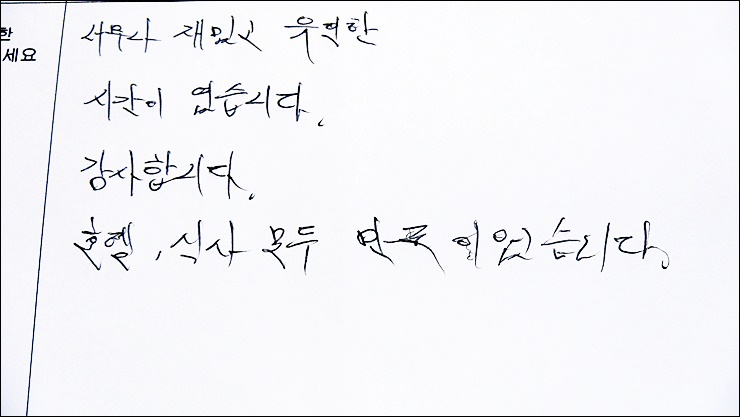 한
세요
너무나 재밌고 유익한
시간이 였습니다.
감사합니다.
호텔, 식사 모두 만족 이었습니다.